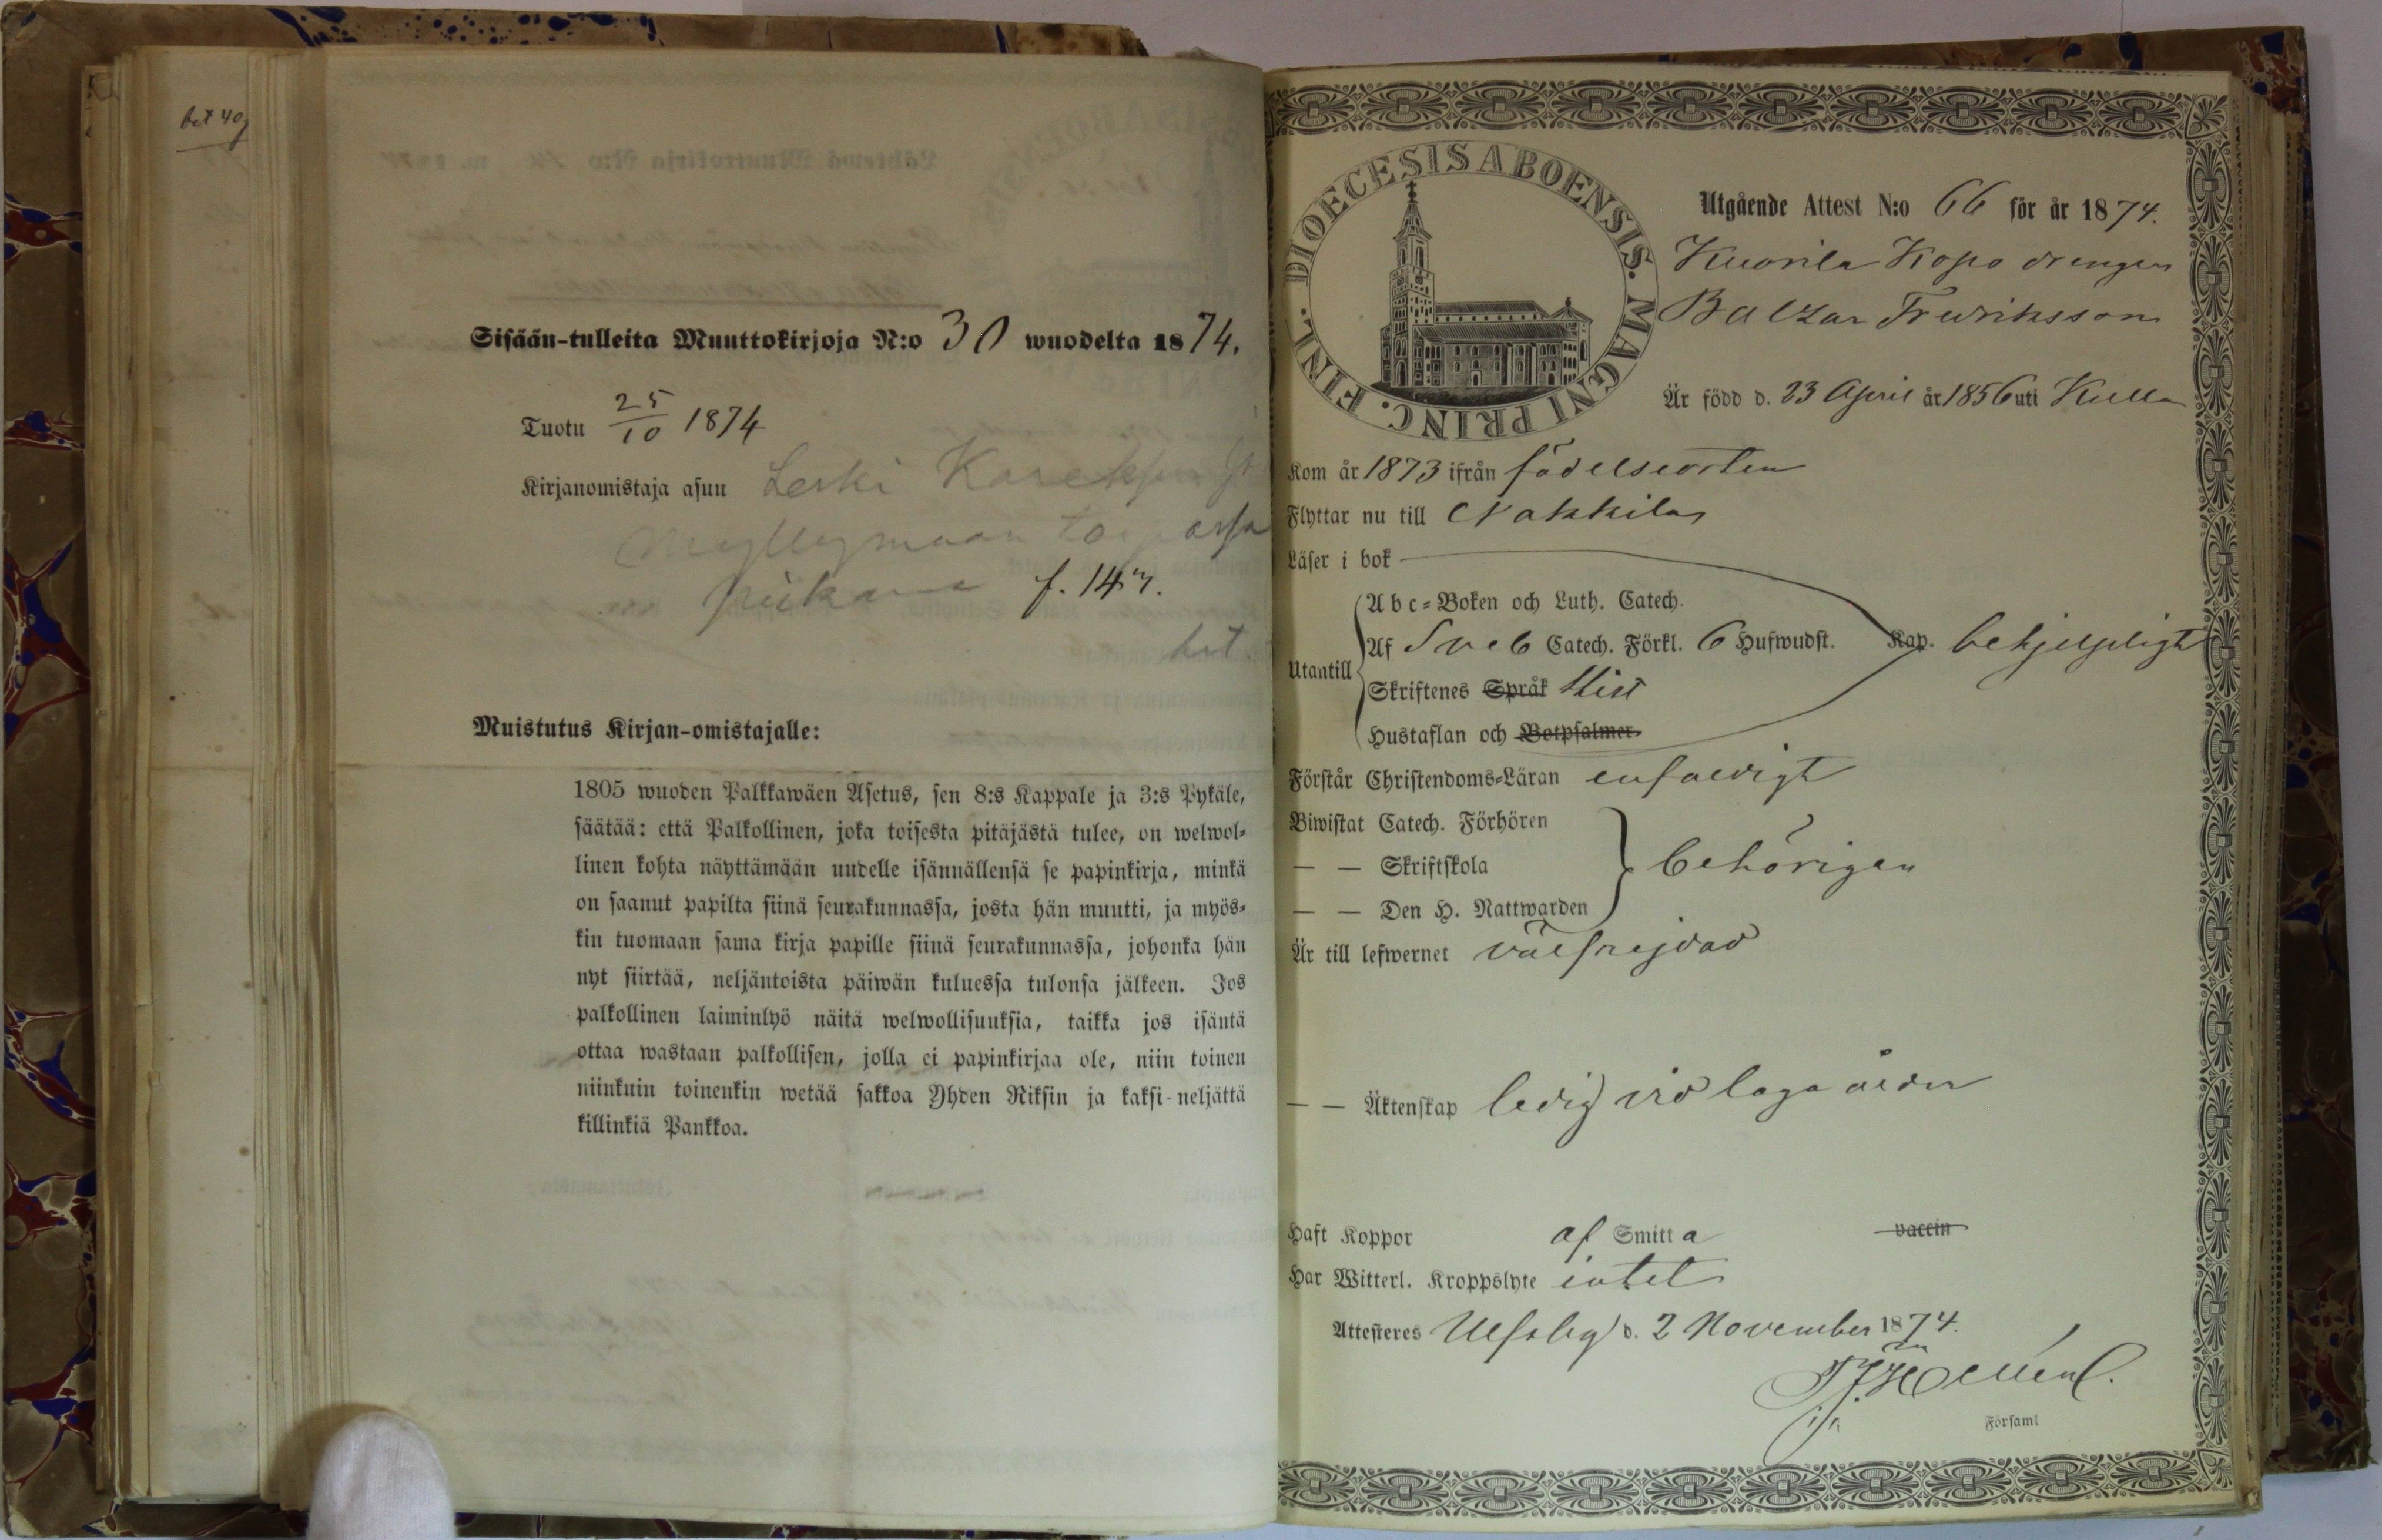 bet 40
Sisään-tulleita Muuttokirjoja N:o 30 wuodelta 1874.
Tuotu 25/10 1874
Kirjanomistaja asuu Leski
f. 147.
Muistutus Kirjan-omistajalle:
1805 wuoden Palkkawäen Asetus, sen 8:s Kappale ja 3:s Pykäle,
säätää: että Palkollinen, joka toisesta pitäjästä tulee, on welwol-
linen kohta näyttämään uudelle isännällensä se papinkirja, minkä
on saanut papilta siinä seurakunnassa, josta hän muutti, ja myös-
kin tuomaan sama kirja papille siinä seurakunnassa, johonka hän
nyt siirtää, neljäntoista päiwän kuluessa tulonsa jälkeen. Jos
palkollinen laiminlyö näitä welwollisuuksia, taikka jos isäntä
ottaa wastaan palkollisen, jolla ei papinkirjaa ole, niin toinen
niinkuin toinenkin wetää sakkoa Yhden Riksin ja kaksi-neljättä
killinkiä Pankkoa.
DIOECESIS ABOENSIS. MAGNI PRINC. FINL.
Utgående Attest N:o 66 för år 1874.
Kuorila Kopo drengen
Balzar Fredriksson
Är född d. 23 April år 1856 uti Kulla
Kom år 1873 ifrån födelseorten
Flyttar nu till Nakkila
Läser i bok
Utantill
Abc-Boken och Luth. Catech.
Af Sveb Catech. Förkl. 6 Hufwudst. Kap. behjelpligt
Skriftenes Språk Hist
Hustaflan och Botpsalmer
Förstår Christendoms-Läran enfaldigt
Biwistat Catech. Förhören
— — Skriftskola behörigen
— — Den H. Nattwarden
Är till lefwernet välfrejdad
— — Äktenskap ledig vid laga ålder
Haft Koppor af Smitta vaccin
Har Witterl. Kroppslyte intet
Attesteres Ulfsby d. 2 November 1874.
Församl